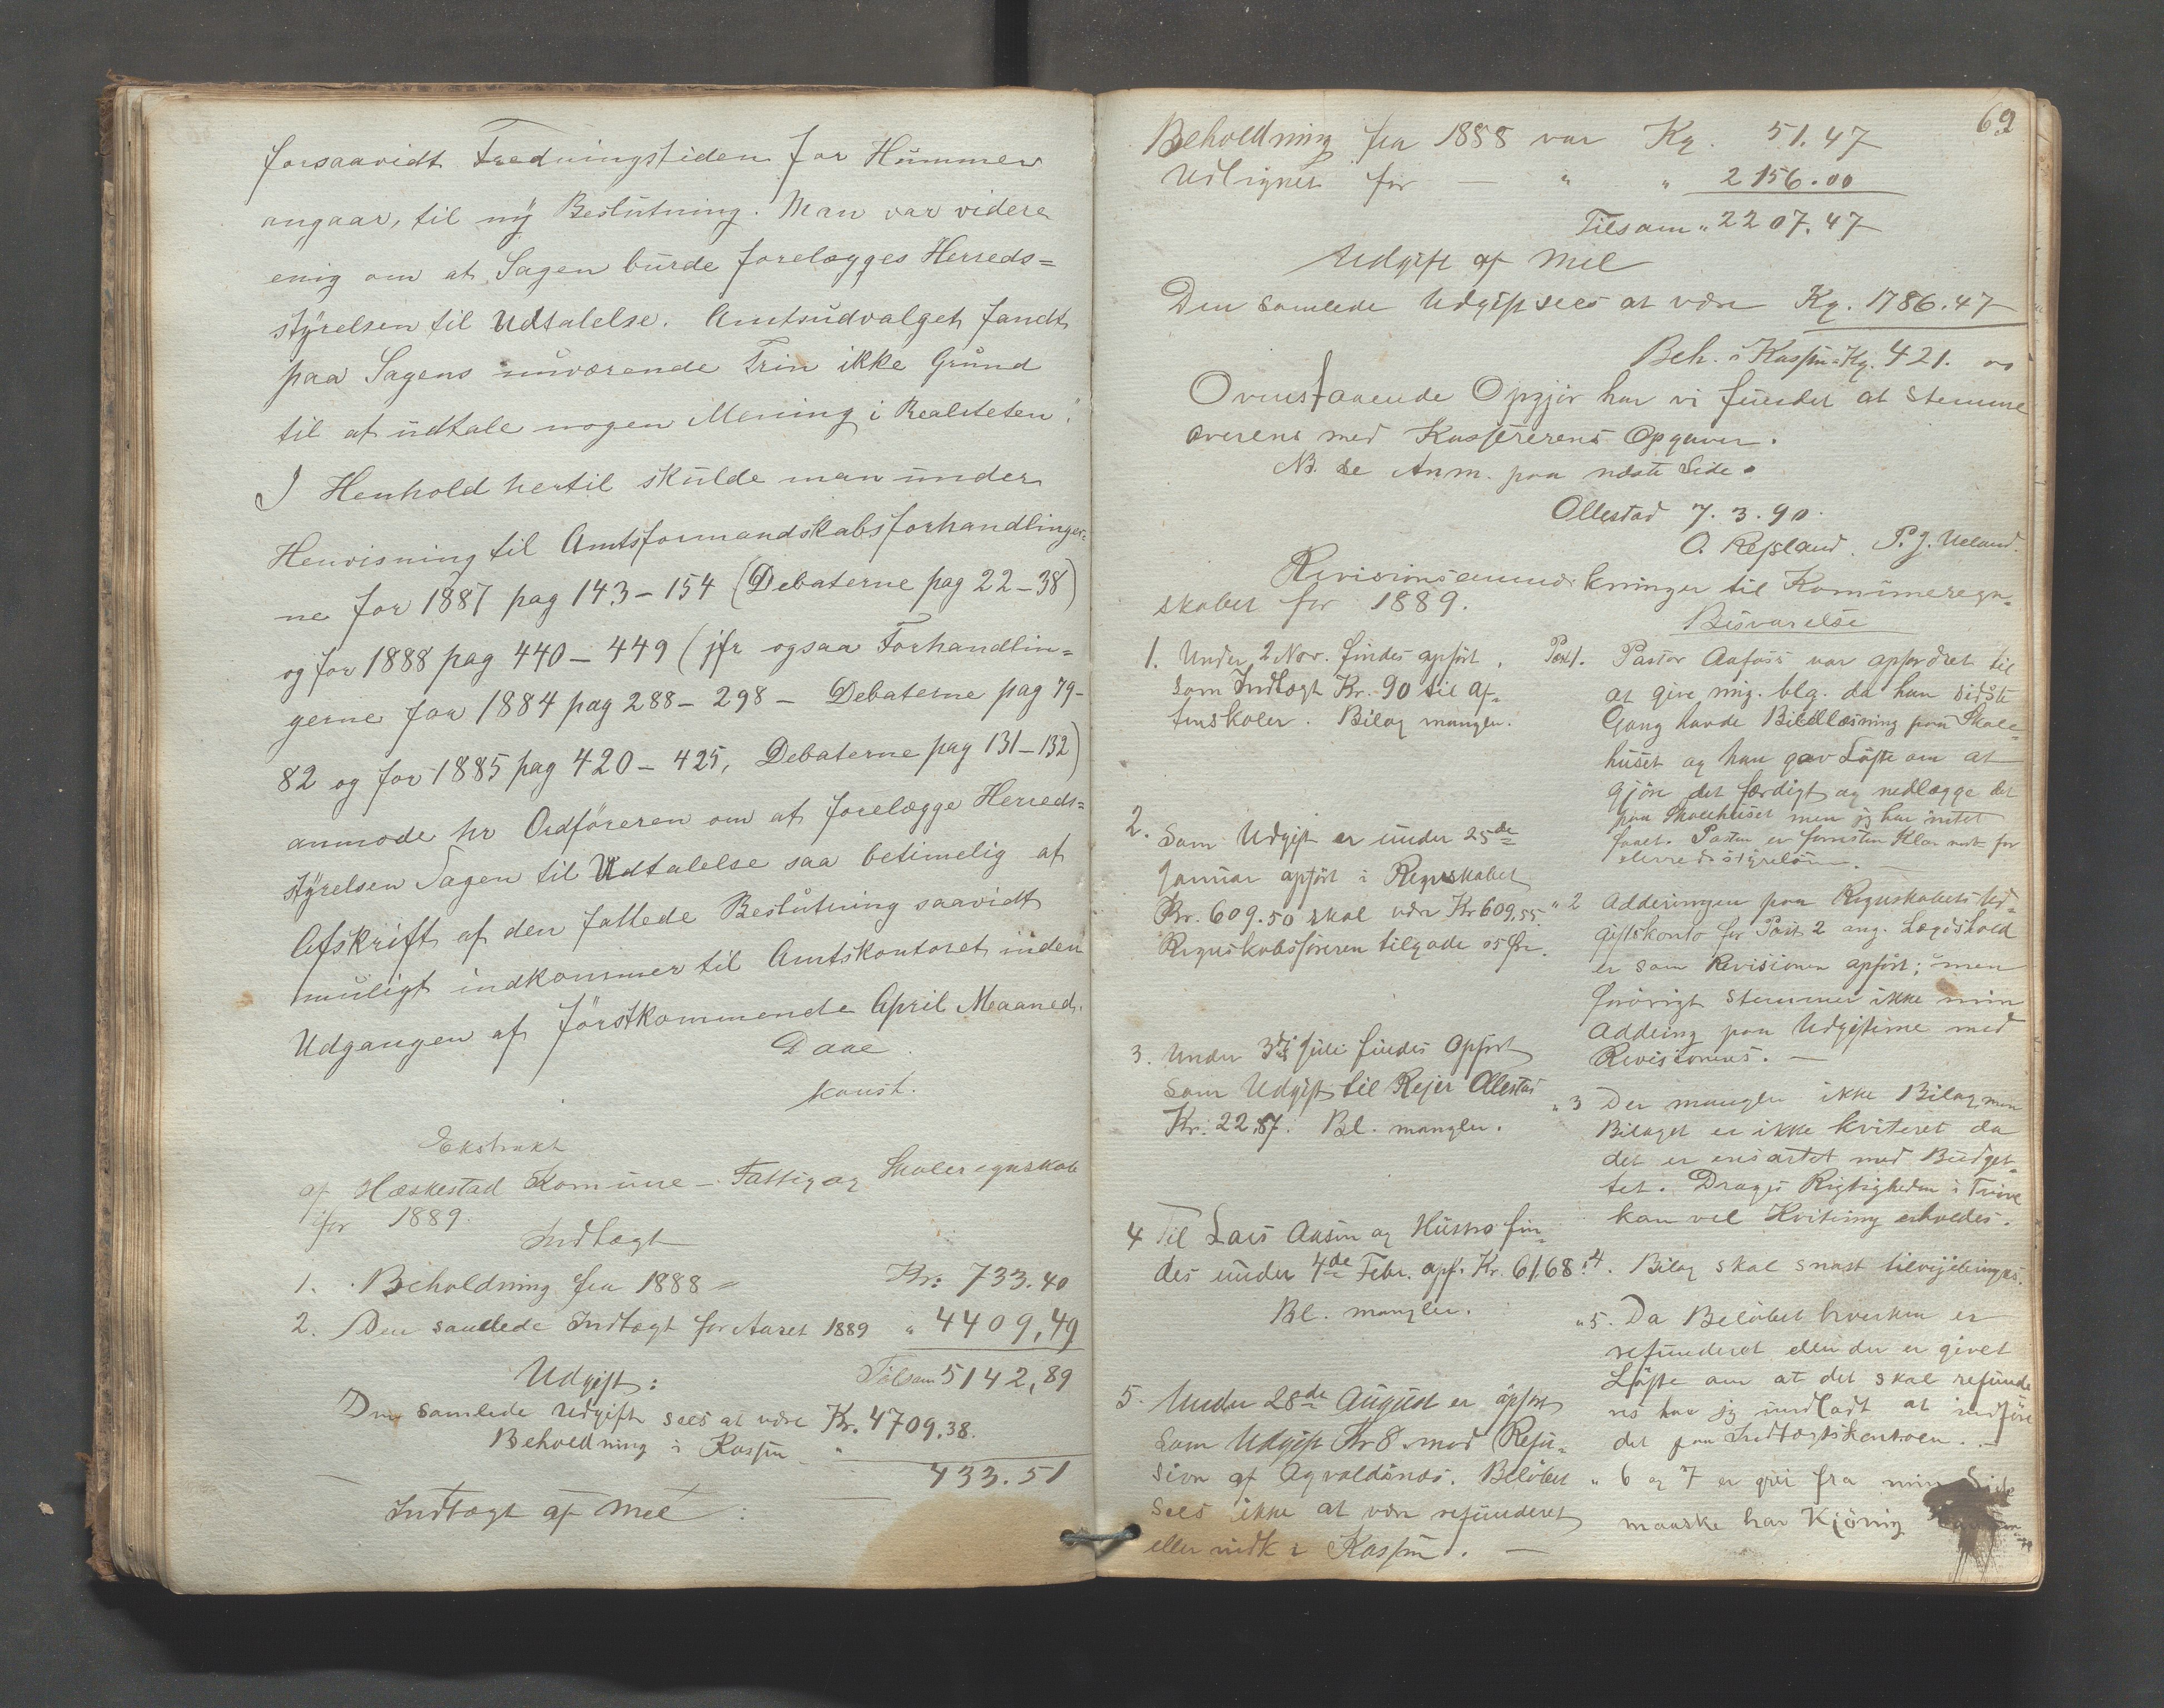 forsaavidt Fredningstiden for Hummer
angaar, til ny Beslutning. Man var videre
enig om at Sagen burde forelægges Herreds=
styrelsen til Udtalelse. Amtsudvalget fandt
paa Sagens nuværende Trin ikke Grund
til at udtale nogen Mening i Realiteten.
I Henhold hertil skulde man under
Henvisning til Amtsformandskabsforhandlinger=
ne for 1887 pag 143–154 (Debaterne pag 22–38)
og for 1888 pag 440–449 (jfr ogsaa Forhandlin=
gerne for 1884 pag 288–298 – Debaterne pag 79–
82 og for 1885 pag 420–425, Debaterne pag 131–132)
anmode hr Ordføreren om at forelægge Herreds=
styrelsen Sagen til Udtalelse saa betimelig at
Afskrift af den fattede Beslutning saavidt
muligt indkommer til Amtskontoret inden
Udgangen af førstkommende April Maaned.
Daae
konst.
Ekstrakt
af Hæskestad Komune – Fattig og Skoleregnskab
for 1889.
Indtægt
1. Beholdning fra 1888 = Kr. 733.40
2. Den samlede Indtægt for Aaret 1889 " 4409,49
Tilsam 5142,89
Udgift:
Den samlede Udgift sees at være Kr. 4709.38.
Beholdning i Kassen " 433.51
Indtægt af Mel:
69
Beholdning fra 1888 var Kg. 51.47
Udlignet for — " " 2156.00
Tilsam " 2207.47
Udgift af Mel
Den samlede Udgift sees at være Kg. 1786.47
Beh. i Kassen Kg. 421. 00
Ovenstaaende Opgjør har vi fundet at stemme
overens med Kassererens Opgaver.
NB. Se Anm. paa næste Side.
Ollestad 7.3.90.
O. Refsland. P. J. Ueland.
Revisionsanmærkninger til Komuneregn=
skabet for 1889.
Besvarelse
1. Under 2 Nov. findes opført
som Indtægt Kr. 90 til Af=
tenskoler. Bilag mangler.
2. Som Udgift er under 25de
Januar opført i Regnskabet
Kr. 609.50 skal være Kr 609,55
Regnskabsføreren tilgode 05 Øre.
3. Under 3die Juli findes opført
som Udgift til Rejer Ollestad
Kr. 22,87. Bl. mangler.
4 Til Lars Aasen og Hustro fin=
des under 4de Febr. opf. Kr. 61.68.
Bl. mangler.
5. Under 28de August er opført
som Udgift Kr 8 mod Refu=
sion af Ogvaldsnæs. Beløbet
sees ikke at være refunderet
eller indk i Kassen. —
Post 1. Pastor Aafoss var opfordret til
at give mig. blg. da han sidste
Gang havde Bibellæsning paa Skole=
huset og han gav Løfte om at
gjøre det færdigt og nedlægge det
paa Skolehuset men jeg har intet
faaet. Pasten er forresten Klar nok for
Herredsstyrelsen. —
" 2 Adderingen paa Regnskabets Ud=
giftskonto for Post 2 ang. Lægdshold
er som Revisionen opført; men
forøvrigt stemmer ikke min
Addering paa Udgifterne med
Revisionens. —
" 3 Der mangler ikke Bilag men
Bilaget er ikke kviteret da
det er ensartet med Budget=
tet. Drages Rigtigheden i Tvivl
kan vel Kvitering erholdes.
" 4. Bilag skal snart tilvejebringes.
" 5. Da Beløbet hverken er
refunderet eller der er givet
Løfte om at det skal refunde
res har jeg undladt at indføre
det paa Indtægtskontoen. —
" 6 og 7 er grei fra min Side
maaske har Kjönig